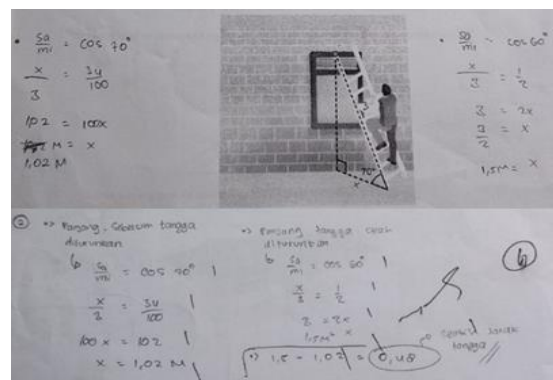 • sa/mi = cos 70°
x/3 = 34/100
102 = 100x
M = x
1,02 M
3
70°
x
• sa/mi = cos 60°
x/3 = 1/2
3 = 2x
3/2 = x
1,5M = x
② •> Panjang sebelum tangga
diturunkan
sa/mi = cos 70°
x/3 = 34/100
100x = 102
x = 1,02 M
•> Panjang tangga
diturunkan
sa/mi = cos 60°
x/3 = 1/2
3 = 2x
1,5M = x
•) 1,5 - 1,02 = 0,48
jarak
tangga
6